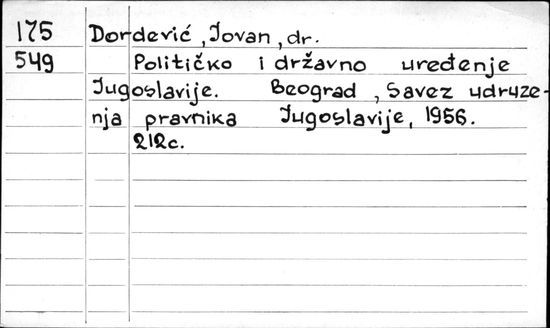 175 Dordević, Jovan, dr.
549 Političko i državno uređenje
Jugoslavije. Beograd, Savez udruže-
nja pravnika Jugoslavije, 1956.
212c.